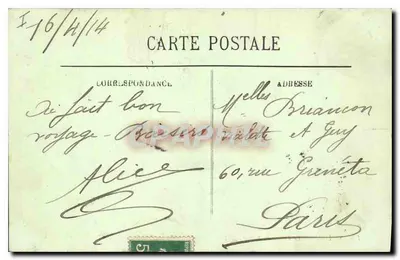 I 16/4/14
CARTE POSTALE
CORRESPONDANCE
Ai fait bon
voyage - Baisers
Alice
ADRESSE
Melles Briançon
et Guy
60, rue Greneta
Paris
5